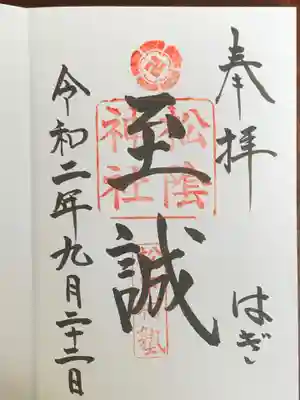 奉拝
はぎ
松陰
神社
至誠
松下村塾
令和二年九月二十二日